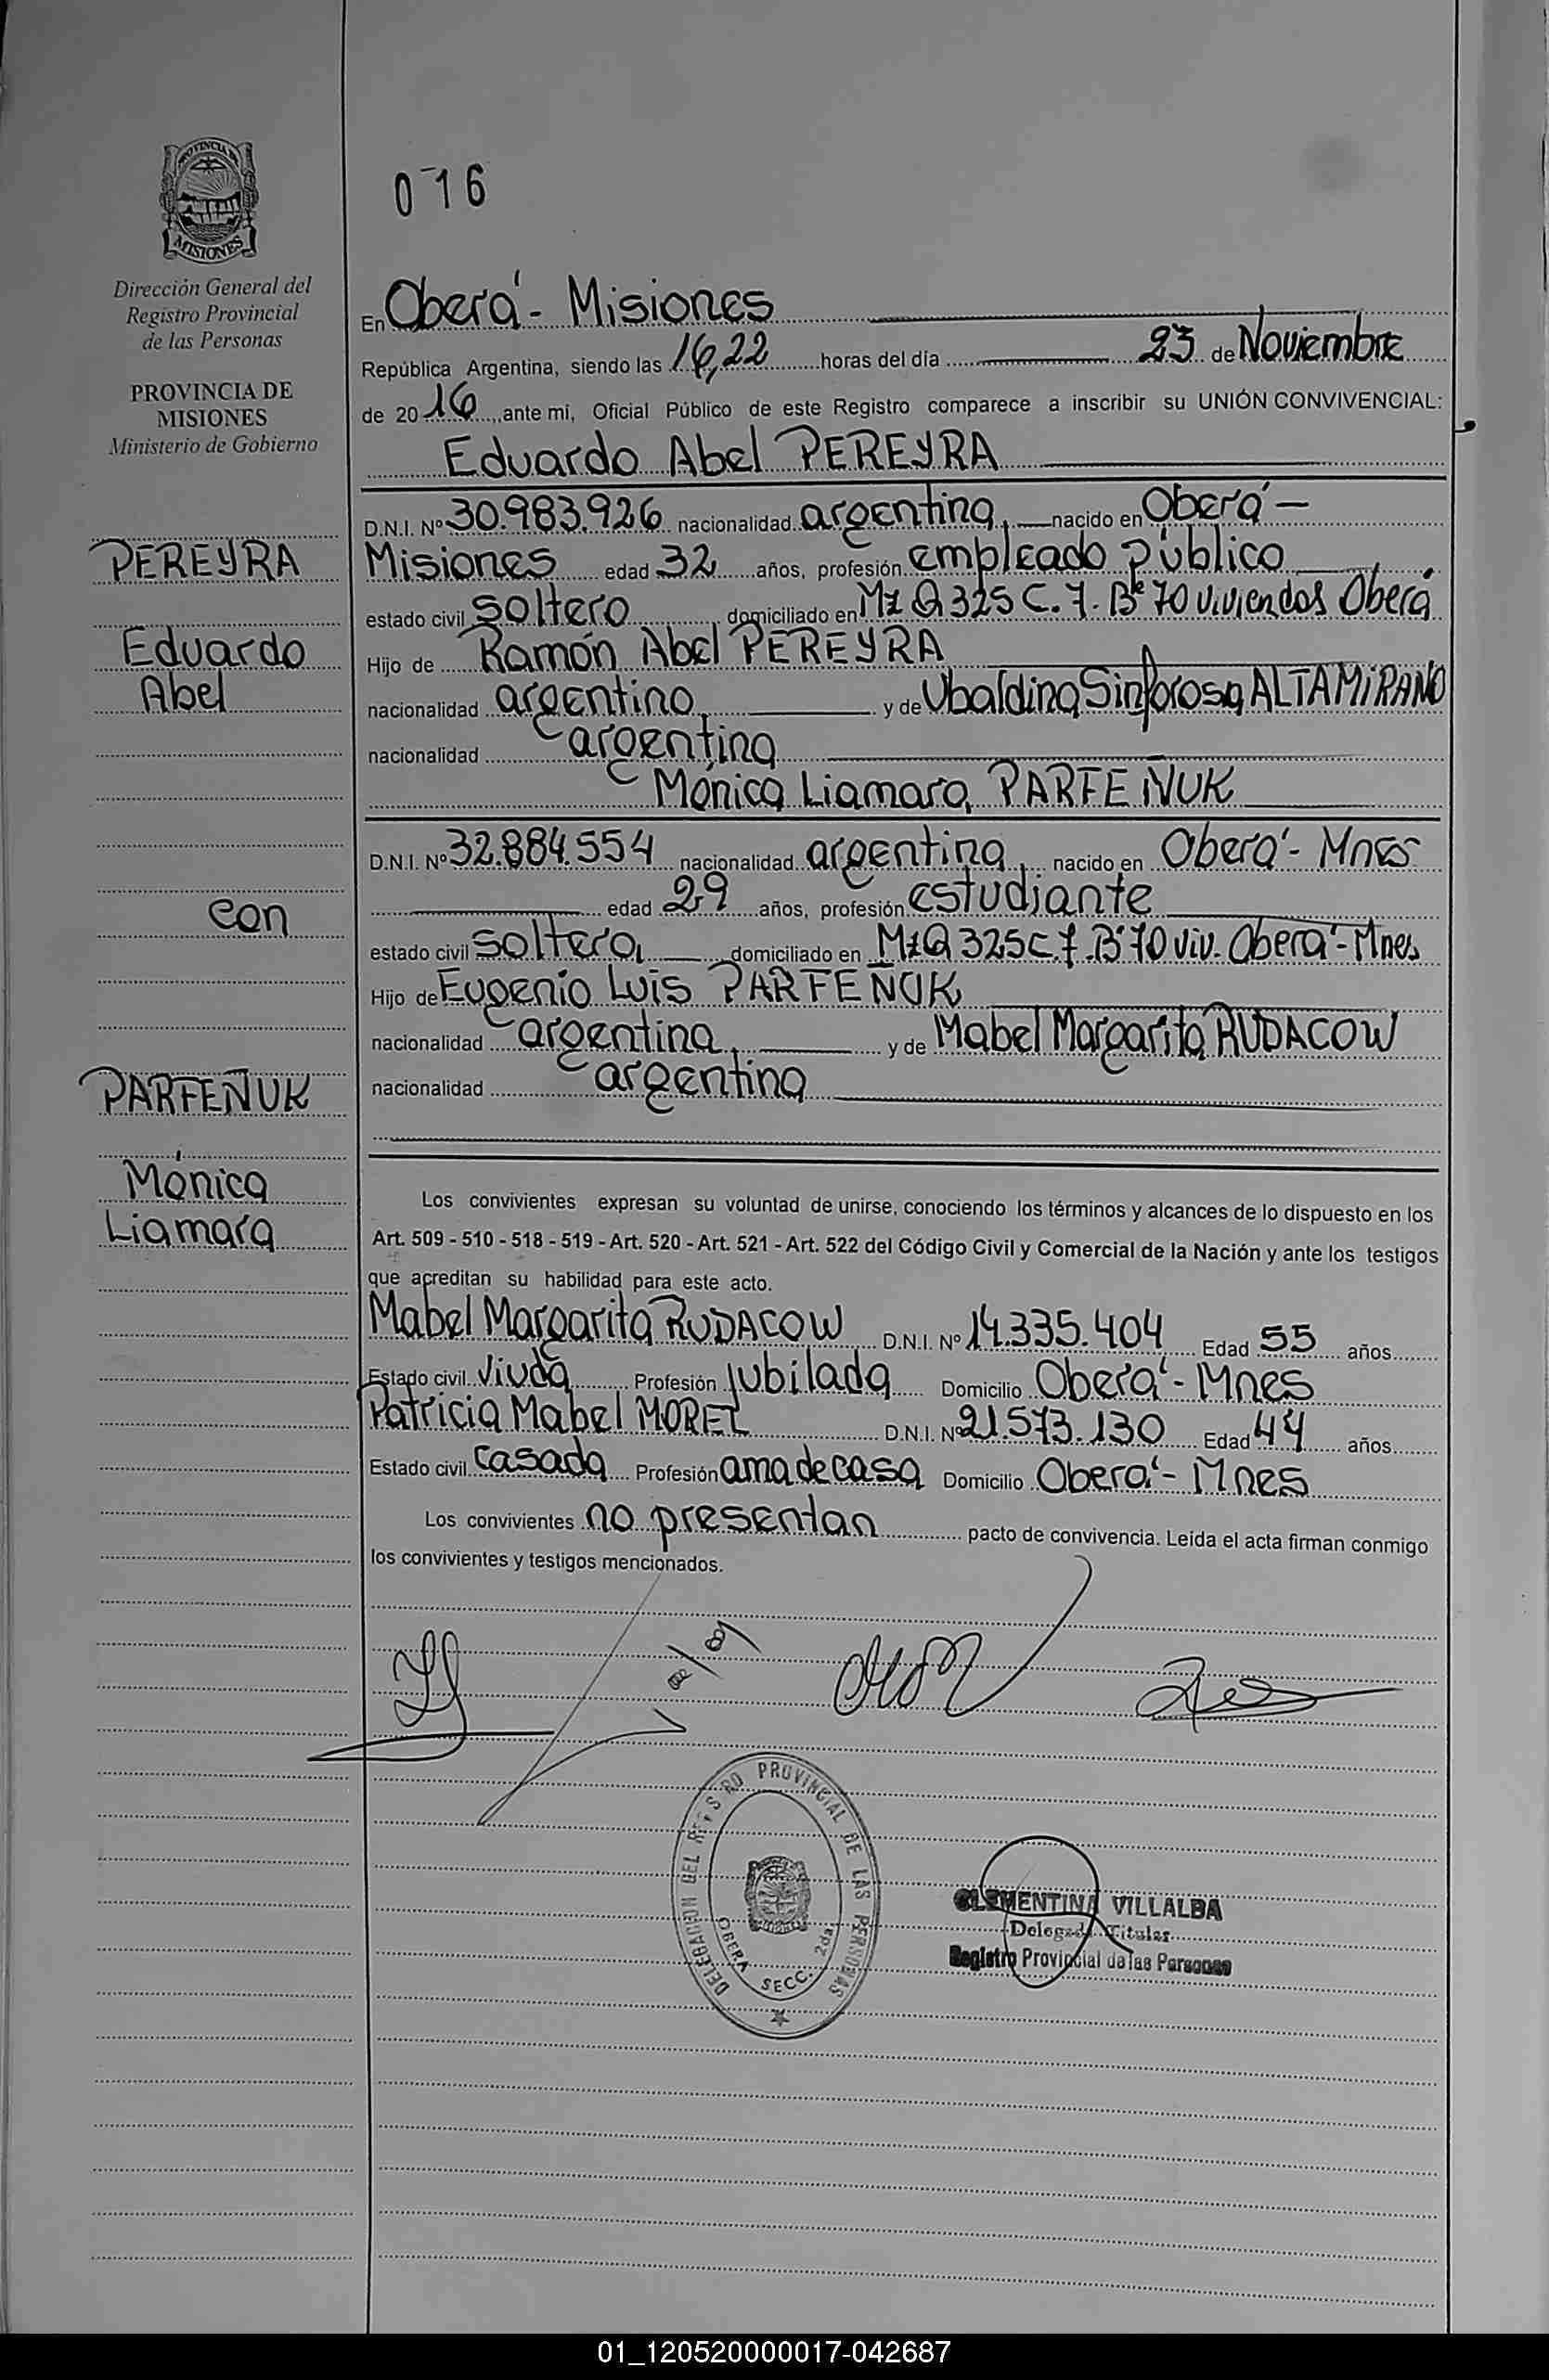 016
PROVINCIA DE
MISIONES
Dirección General del
Registro Provincial
de las Personas
PROVINCIA DE
MISIONES
Ministerio de Gobierno
PEREYRA
Eduardo
Abel
con
PARFEÑUK
Mónica
Liamara
En Oberá - Misiones
República Argentina, siendo las 16,22 horas del día 23 de Noviembre
de 2016, ante mi, Oficial Público de este Registro comparece a inscribir su UNIÓN CONVIVENCIAL:
Eduardo Abel PEREYRA
D.N.I. Nº 30.983.926 nacionalidad argentina, nacido en Oberá -
Misiones edad 32 años, profesión empleado público
estado civil soltero domiciliado en Mz Q 325 C. 7. Bº 70 viviendas Oberá
Hijo de Ramón Abel PEREYRA
nacionalidad argentino, y de Ubaldina Sinforosa ALTAMIRANO
nacionalidad argentina
Mónica Liamara PARFEÑUK
D.N.I. Nº 32.884.554 nacionalidad argentina, nacido en Oberá - Mnes
edad 29 años, profesión estudiante
estado civil soltera, domiciliado en Mz Q 325 C. 7. Bº 70 viv. Oberá - Mnes
Hijo de Eugenio Luis PARFEÑUK
nacionalidad argentina, y de Mabel Margarita RUDACOW
nacionalidad argentina
Los convivientes expresan su voluntad de unirse, conociendo los términos y alcances de lo dispuesto en los
Art. 509 - 510 - 518 - 519 - Art. 520 - Art. 521 - Art. 522 del Código Civil y Comercial de la Nación y ante los testigos
que acreditan su habilidad para este acto.
Mabel Margarita RUDACOW D.N.I. Nº 14.335.404 Edad 55 años
Estado civil Viuda Profesión jubilada Domicilio Oberá - Mnes
Patricia Mabel MOREL D.N.I. Nº 21.573.130 Edad 44 años
Estado civil casada Profesión ama de casa Domicilio Oberá - Mnes
Los convivientes no presentan pacto de convivencia. Leida el acta firman conmigo
los convivientes y testigos mencionados.
DELEGACION DEL REGISTRO PROVINCIAL DE LAS PERSONAS
OBERA SECC. 2da
CLEMENTINA VILLALBA
Delegada Titular
Registro Provincial de las Personas
01_120520000017-042687